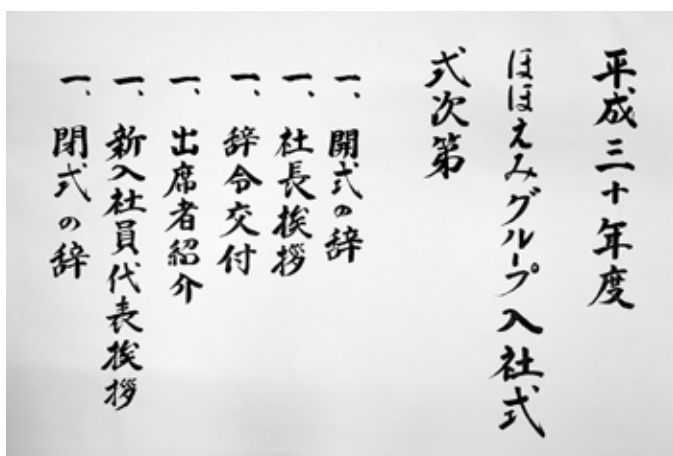 平成三十年度
ほほえみグループ入社式
式次第
一、開式の辞
一、社長挨拶
一、辞令交付
一、出席者紹介
一、新入社員代表挨拶
一、閉式の辞